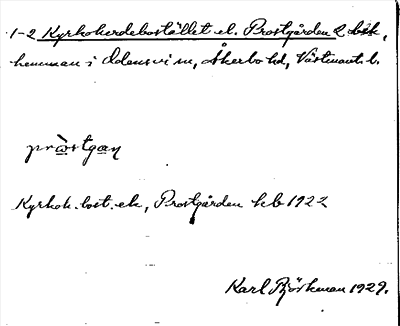 1-2 Kyrkoherdebostället el. Prostgården 2 bsk,
hemman i Odensvi sn, Åkerbo hd, Västmanl. l.
pròstgan
Kyrkoh. bost. ek, Prostgården kb 1922
Karl Björkman 1929.